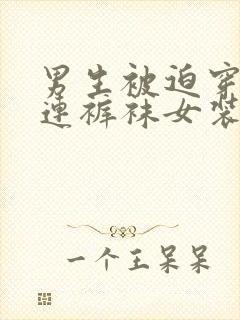 男生被迫穿
连裤袜女装
一个王呆呆